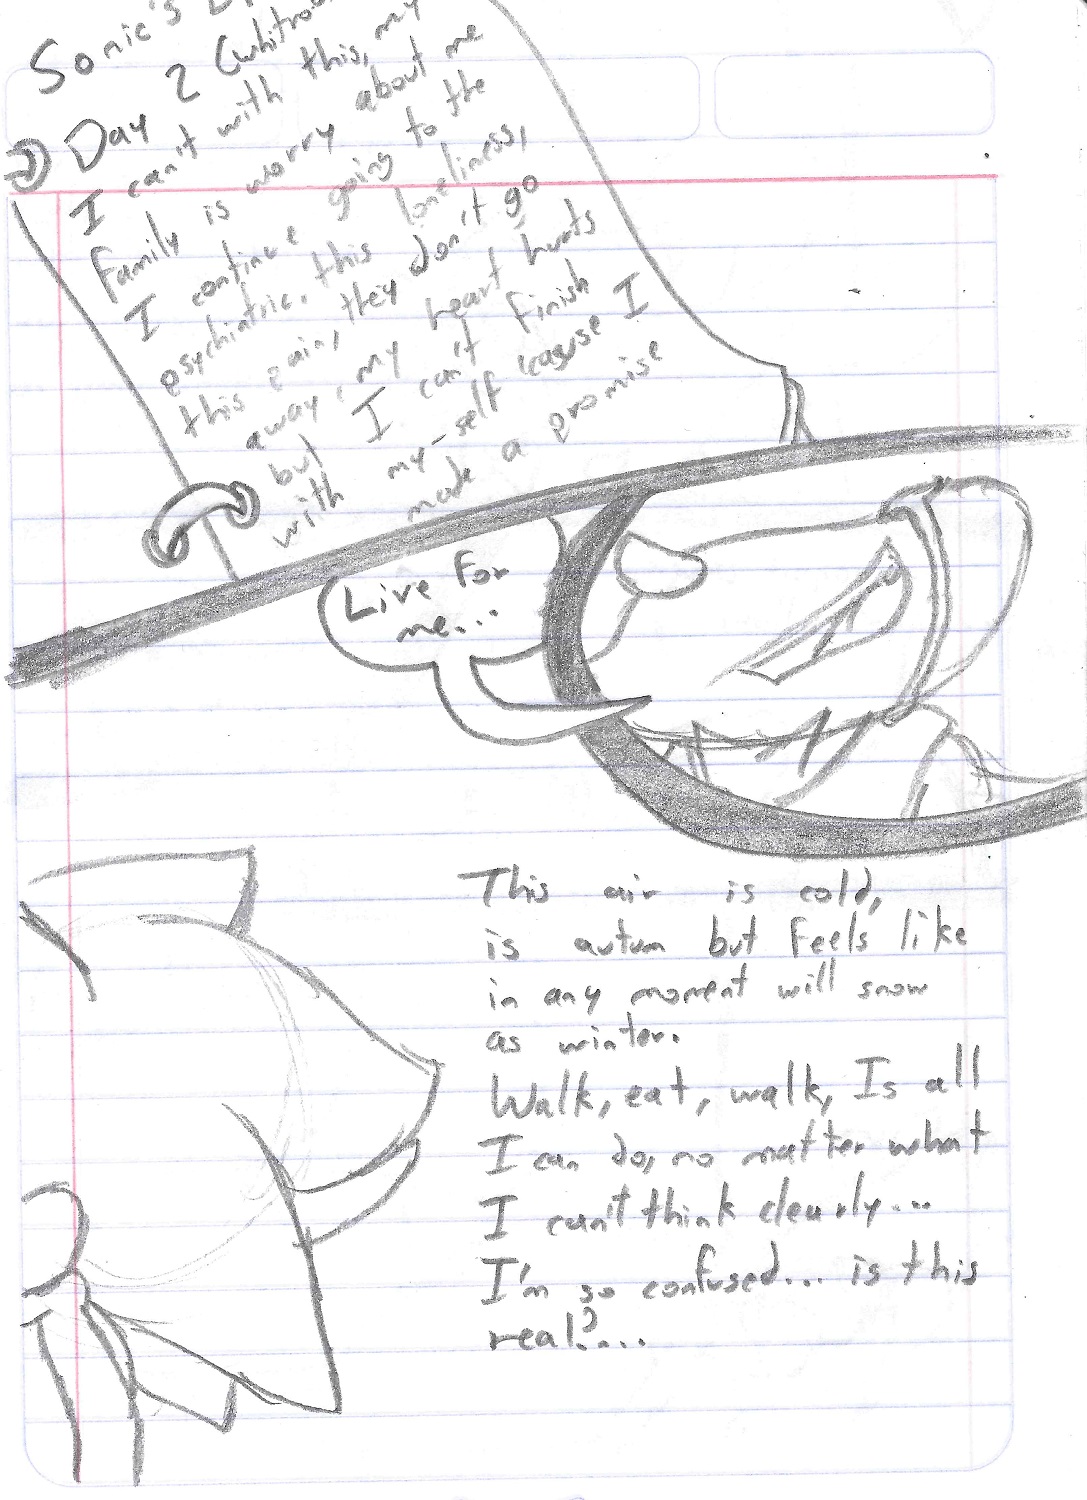 Sonic's
Day 2 (whitou
I can't with this, my
family is worry about me
I continue going to the
psychiatric. this loneliness,
this pain, they don't go
away, my heart hurts
but I can't finish
with my-self 'cause I
made a promise
Live for
me...
This air is cold,
is autum but feels like
in any moment will snow
as winter.
Walk, eat, walk, Is all
I can do, no matter what
I can't think clearly...
I'm so confused... is this
real?...